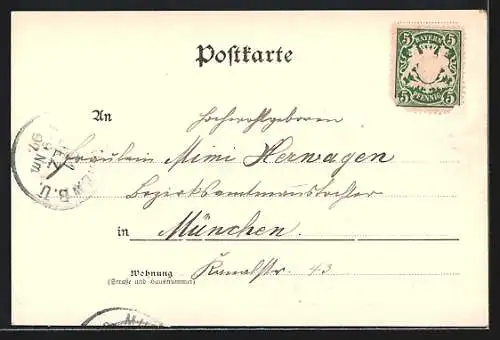 Postkarte
5 BAYERN 5
5 PFENNIG 5
An Hochwohlgeboren
Fräulein Mimi Herwagen
Bezirksamtmannstochter
in München.
Wohnung Kanalstr. 43
(Straße und Hausnummer)
B.U.
Nm.